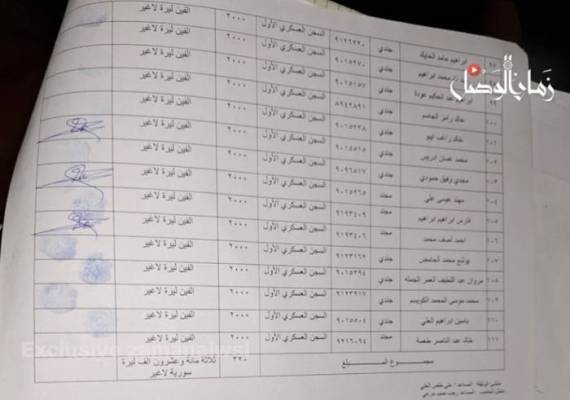 زمان الوصل
ابراهيم حامد الحايك جندي ٩١٢٦٢٢٠ السجن العسكري الأول ٢٠٠٠ الفين ليرة لاغير
محمد ابراهيم جندي ٩٠١٥٢٧٠ السجن العسكري الأول ٢٠٠٠ الفين ليرة لاغير
الحكيم عودة جندي ٩٠١٥١٥٧ السجن العسكري الأول ٢٠٠٠ الفين ليرة لاغير
١٠٠ خالد رامز الجاسم جندي ٨٩٤٢٨٩١ السجن العسكري الأول ٢٠٠٠ الفين ليرة لاغير
١٠١ خالد راغب ايبو جندي ٩٠١٥٢٣٨ السجن العسكري الأول ٢٠٠٠ الفين ليرة لاغير
١٠٢ محمد غسان ادريس جندي ٩٠١٥٥١٥ السجن العسكري الأول ٢٠٠٠ الفين ليرة لاغير
١٠٣ مجدي وفيق حمودي جندي ٩٠٩٦٥١٧ السجن العسكري الأول ٢٠٠٠ الفين ليرة لاغير
١٠٤ مهند عيسى علي مجند ٩٠١٥٣٦٥ السجن العسكري الأول ٢٠٠٠ الفين ليرة لاغير
١٠٥ فارس ابراهيم ابراهيم مجند ٩١٩٣٤٠٩ السجن العسكري الأول ٢٠٠٠ الفين ليرة لاغير
١٠٦ احمد آصف محمد مجند ٩١٩٣٤٠٦ السجن العسكري الأول ٢٠٠٠ الفين ليرة لاغير
١٠٧ يوشع محمد الحامض جندي ٩١٢٣١٦٢ السجن العسكري الأول ٢٠٠٠ الفين ليرة لاغير
١٠٨ مروان عبد اللطيف العمر الجمله جندي ٩٠١٥٢٩٤ السجن العسكري الأول ٢٠٠٠ الفين ليرة لاغير
١٠٩ محمد موسى المحمد الكويسم جندي ٩١٢٣٩١٧ السجن العسكري الأول ٢٠٠٠ الفين ليرة لاغير
١١٠ ياسين ابراهيم العلي جندي ٩٠١٥٥٠٤ السجن العسكري الأول ٢٠٠٠ الفين ليرة لاغير
١١١ خالد عبد الناصر طعمة مجند ٩٢١٦٠٩٤ السجن العسكري الأول ٢٠٠٠ الفين ليرة لاغير
مجموع المبلغ ٣٢٠ ثلاثة مائة وعشرون الف ليرة
سورية لاغير
Exclusive zamanalwsl